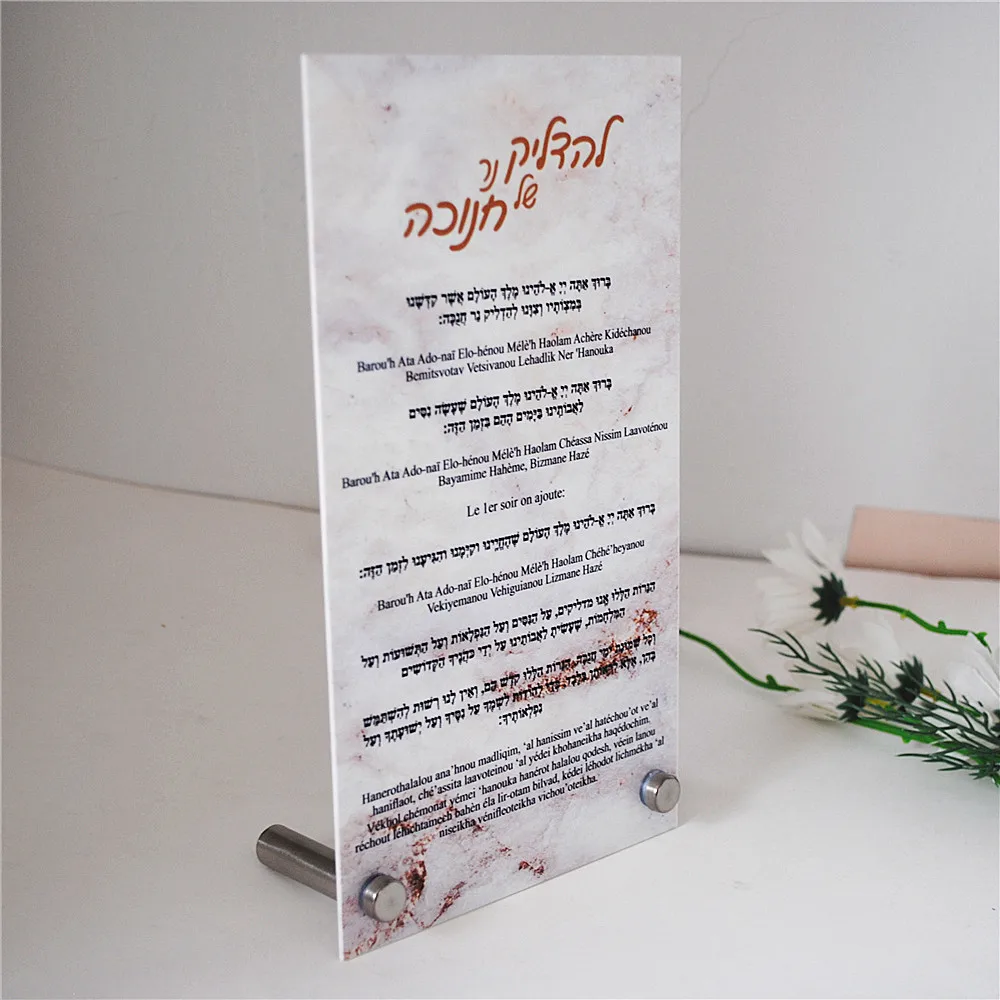 להדליק נר
של חנוכה
בָּרוּךְ אַתָּה יְיָ אֱ-לֹהֵינוּ מֶלֶךְ הָעוֹלָם אֲשֶׁר קִדְּשָׁנוּ
בְּמִצְוֹתָיו וְצִוָּנוּ לְהַדְלִיק נֵר חֲנֻכָּה:
Barou'h Ata Ado-naï Elo-hénou Mélè'h Haolam Achère Kidéchanou
Bemitsvotav Vetsivanou Lehadlik Ner 'Hanouka
בָּרוּךְ אַתָּה יְיָ אֱ-לֹהֵינוּ מֶלֶךְ הָעוֹלָם שֶׁעָשָׂה נִסִּים
לַאֲבוֹתֵינוּ בַּיָּמִים הָהֵם בַּזְּמַן הַזֶּה:
Barou'h Ata Ado-naï Elo-hénou Mélè'h Haolam Chéassa Nissim Laavoténou
Bayamime Hahème, Bizmane Hazé
Le 1er soir on ajoute:
בָּרוּךְ אַתָּה יְיָ אֱ-לֹהֵינוּ מֶלֶךְ הָעוֹלָם שֶׁהֶחֱיָינוּ וְקִיְּמָנוּ וְהִגִּיעָנוּ לַזְּמַן הַזֶּה:
Barou'h Ata Ado-naï Elo-hénou Mélè'h Haolam Chéhé'heyanou
Vekiyemanou Vehiguianou Lizmane Hazé
הַנֵּרוֹת הַלָּלוּ אָנוּ מַדְלִיקִים, עַל הַנִּסִּים וְעַל הַנִּפְלָאוֹת וְעַל הַתְּשׁוּעוֹת וְעַל
הַמִּלְחָמוֹת, שֶׁעָשִׂיתָ לַאֲבוֹתֵינוּ עַל יְדֵי כֹּהֲנֶיךָ הַקְּדוֹשִׁים
וְכָל שְׁמוֹנַת יְמֵי חֲנֻכָּה, הַנֵּרוֹת הַלָּלוּ קֹדֶשׁ הֵם, וְאֵין לָנוּ רְשׁוּת לְהִשְׁתַּמֵּשׁ
בָּהֶן, אֶלָּא לִרְאוֹתָן בִּלְבַד, כְּדֵי לְהוֹדוֹת לְשִׁמְךָ עַל נִסֶּיךָ וְעַל יְשׁוּעָתֶךָ וְעַל
נִפְלְאוֹתֶיךָ:
Hanerothalalou ana'hnou madliqim, 'al hanissim ve'al hatéchou'ot ve'al
haniflaot, ché'assita laavoteinou 'al yédei khohaneikha haqédochim.
Vékhol chémonat yémei 'hanouka hanérot halalou qodesh, véein lanou
réchout léhichtamech bahèn éla lir-otam bilvad, kédei léhodot lichmékha 'al
niseikha vénifleoteikha vichou'oteikha.